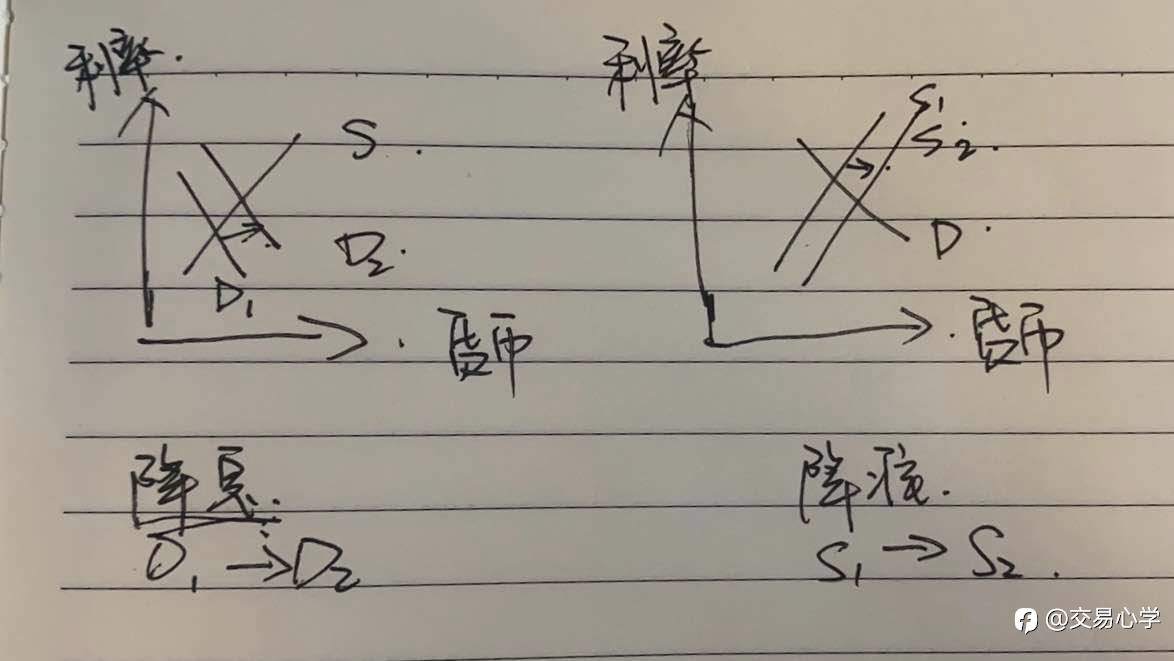 利率.
S.
D₂.
D₁
货币
降息
D₁→D₂
利率
S₁
S₂.
D
货币
降准.
S₁→S₂.
@交易心学